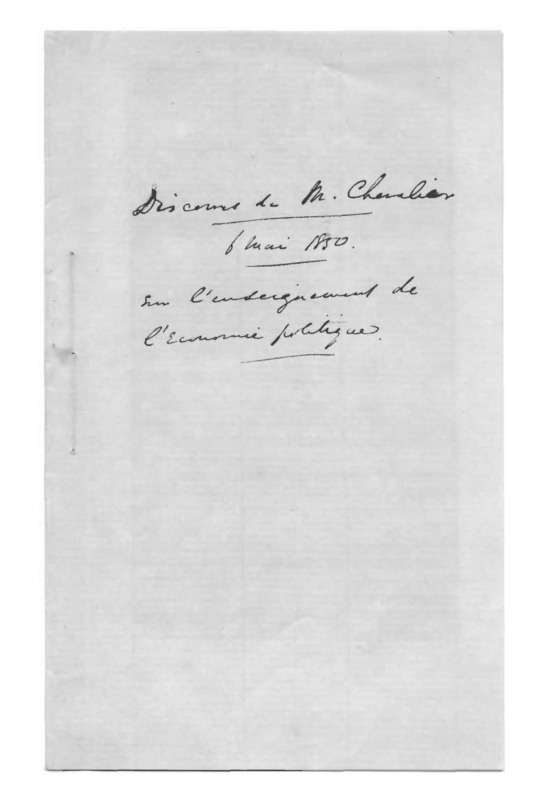 Discours de M. Chevalier
6 mai 1850.
sur l'enseignement de
l'Economie politique.